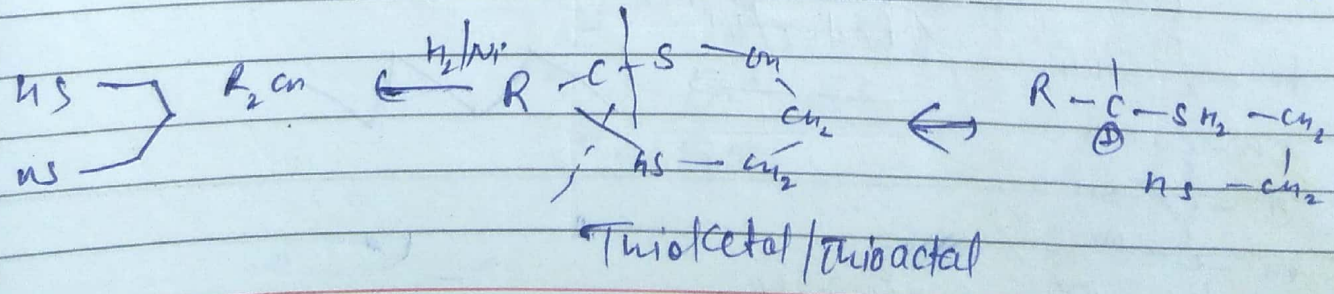 HS R₂CH H₂/Ni R - C - S - CH CH₂ R - C - SH₂ - CH₂
HS HS - CH₂ ⊕ HS - CH₂
Thioketal/Thioactal